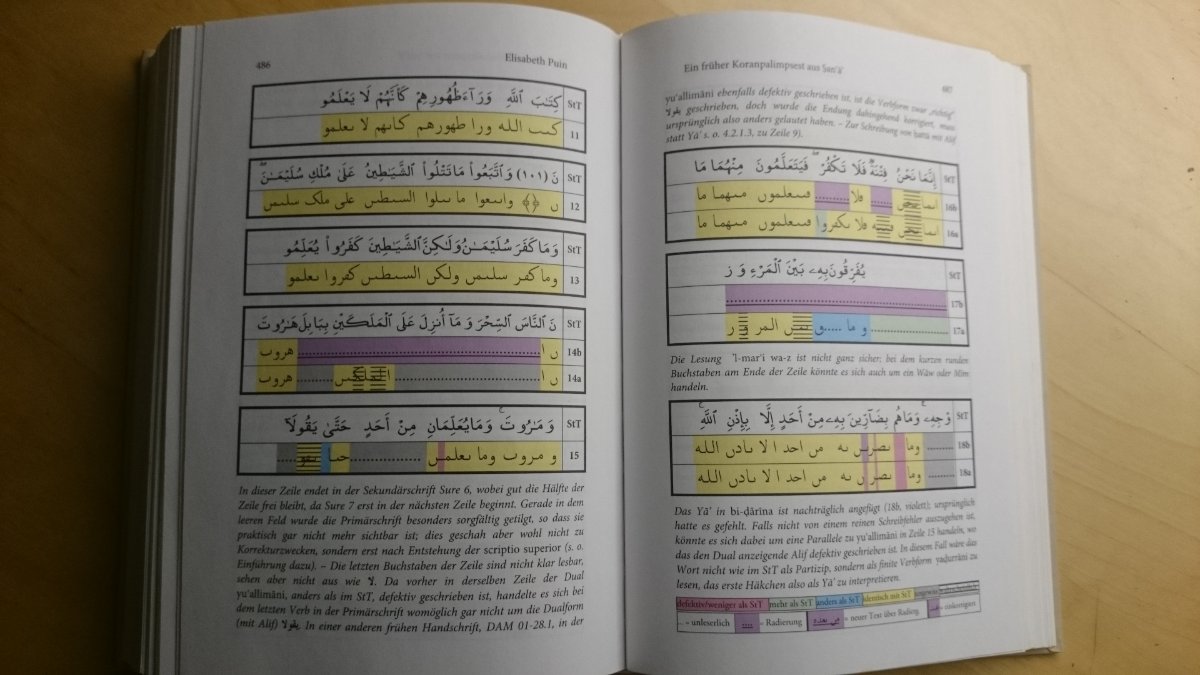 486
Elisabeth Puin
StT كِتَٰبَ ٱللَّهِ وَرَآءَ ظُهُورِهِمْ كَأَنَّهُمْ لَا يَعْلَمُو
11 كتب الله ورا طهورهم كانهم لا يعلمو
StT نَ (١٠١) وَٱتَّبَعُوا۟ مَا تَتْلُوا۟ ٱلشَّيَٰطِينُ عَلَىٰ مُلْكِ سُلَيْمَٰنَ ۖ
12
StT وَمَا كَفَرَ سُلَيْمَٰنُ وَلَٰكِنَّ ٱلشَّيَٰطِينَ كَفَرُوا۟ يُعَلِّمُو
13
StT نَ ٱلنَّاسَ ٱلسِّحْرَ وَمَآ أُنزِلَ عَلَى ٱلْمَلَكَيْنِ بِبَابِلَ هَٰرُوتَ
14b
14a
StT وَمَٰرُوتَ ۚ وَمَا يُعَلِّمَانِ مِنْ أَحَدٍ حَتَّىٰ يَقُولَآ
15
In dieser Zeile endet in der Sekundärschrift Sure 6, wobei gut die Hälfte der
Zeile frei bleibt, da Sure 7 erst in der nächsten Zeile beginnt. Gerade in dem
leeren Feld wurde die Primärschrift besonders sorgfältig getilgt, so dass sie
praktisch gar nicht mehr sichtbar ist; dies geschah aber wohl nicht zu
Korrekturzwecken, sondern erst nach Entstehung der scriptio superior (s. o.
Einführung dazu). – Die letzten Buchstaben der Zeile sind nicht klar lesbar,
sehen aber nicht aus wie لا. Da vorher in derselben Zeile der Dual
yu'allimāni, anders als im StT, defektiv geschrieben ist, handelte es sich bei
dem letzten Verb in der Primärschrift womöglich gar nicht um die Dualform
(mit Alif) يقولا. In einer anderen frühen Handschrift, DAM 01-28.1, in der
Ein früher Koranpalimpsest aus Ṣanʿāʾ
487
yu'allimāni ebenfalls defektiv geschrieben ist, ist die Verbform zwar „richtig“
يقولا geschrieben, doch wurde die Endung dahingehend korrigiert, muss
ursprünglich also anders gelautet haben. – Zur Schreibung von ḥattā mit Alif
statt Yāʾ s. o. 4.2.1.3, zu Zeile 9).
StT إِنَّمَا نَحْنُ فِتْنَةٌ فَلَا تَكْفُرْ ۖ فَيَتَعَلَّمُونَ مِنْهُمَا مَا
16b
16a
StT يُفَرِّقُونَ بِهِۦ بَيْنَ ٱلْمَرْءِ وَ زَ
17b
17a
Die Lesung ʾl-marʾi wa-z ist nicht ganz sicher; bei dem kurzen runden
Buchstaben am Ende der Zeile könnte es sich auch um ein Wāw oder Mīm
handeln.
StT وْجِهِۦ ۚ وَمَا هُم بِضَآرِّينَ بِهِۦ مِنْ أَحَدٍ إِلَّا بِإِذْنِ ٱللَّهِ ۚ
18b
18a
Das Yāʾ in bi-ḍārīna ist nachträglich angefügt (18b, violett); ursprünglich
hatte es gefehlt. Falls nicht von einem reinen Schreibfehler auszugehen ist,
könnte es sich dabei um eine Parallele zu yu'allimāni in Zeile 15 handeln, wo
das den Dual anzeigende Alif defektiv geschrieben ist. In diesem Fall wäre das
Wort nicht wie im StT als Partizip, sondern als finite Verbform yaḍurrāni zu
lesen, das erste Häkchen also als Yāʾ zu interpretieren.
defektiv/weniger als StT mehr als StT anders als StT identisch mit StT
... = unleserlich = Radierung = neuer Text über Radierg. = einkorrigiert